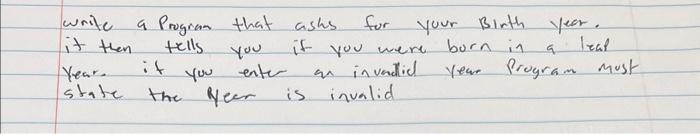 write a Program that asks for your Birth year.
it then tells you if you were born in a leap
Year. if you enter an invalid year Program must
state the Year is invalid